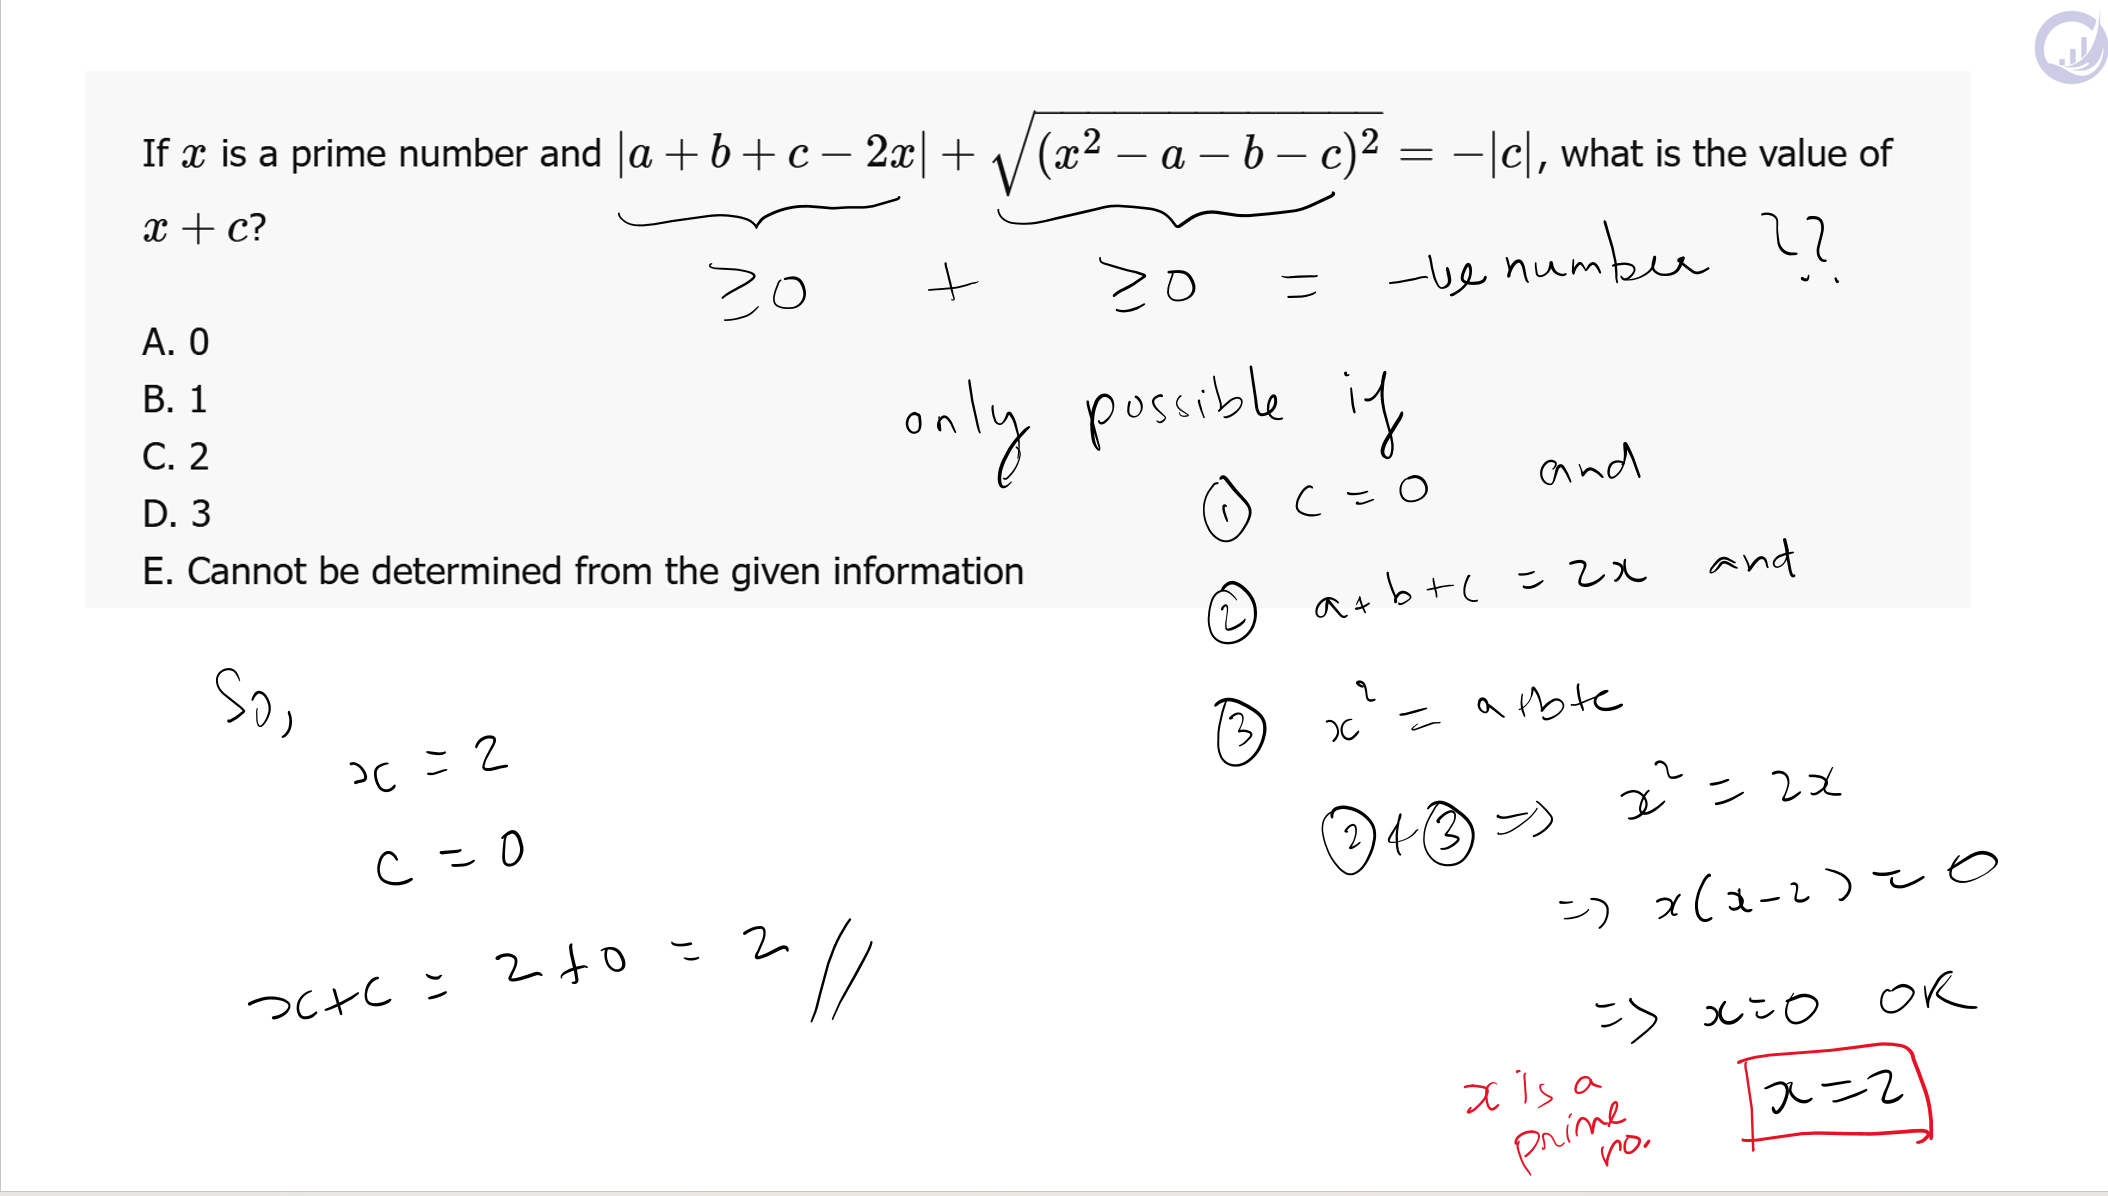 If x is a prime number and |a + b + c − 2x| + √(x² − a − b − c)² = −|c|, what is the value of
x + c?
≥0 + ≥0 = -ve number ??
A. 0
B. 1
C. 2
D. 3
E. Cannot be determined from the given information
only possible if
① c = 0 and
② a+b+c = 2x and
③ x² = a+b+c
②+③ => x² = 2x
=> x(x-2) = 0
=> x=0 OR
x=2
x is a
prime
no.
So,
x = 2
c = 0
x+c = 2+0 = 2 //